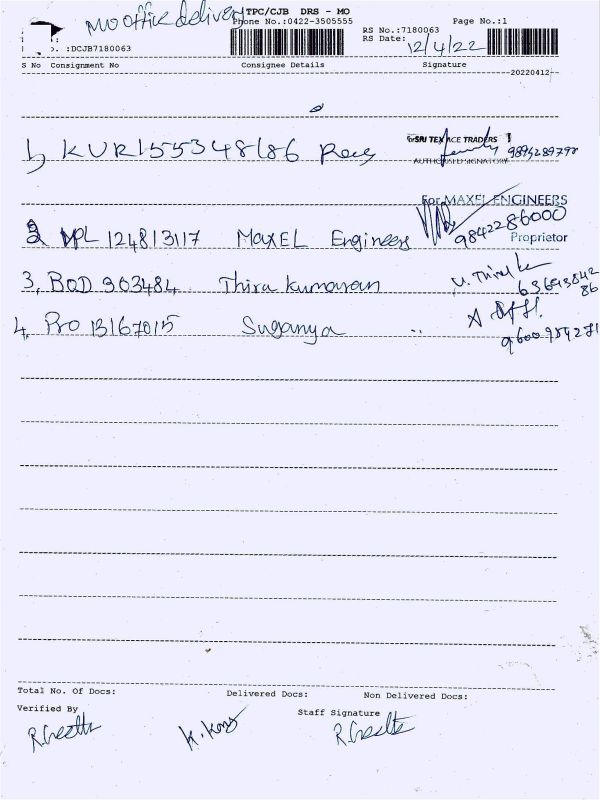 MO office delivery
TPC/CJB DRS - MO
Phone No.:0422-3505555
Page No.:1
RS No.:7180063
RS Date: 12/4/22
:DCJB7180063
S No Consignment No Consignee Details Signature
20220412
1) KUR155348186
For SRI TEX ACE TRADERS
AUTHORISED SIGNATORY
9894289798
For MAXEL ENGINEERS
2 MPL 124813117 MAXEL Engineers
9842286000
Proprietor
3, BOD 963484 Thirukumaran
4, Pro 13167015 Suganya
Total No. Of Docs: Delivered Docs: Non Delivered Docs:
Verified By Staff Signature
R.Geetha R.Geetha